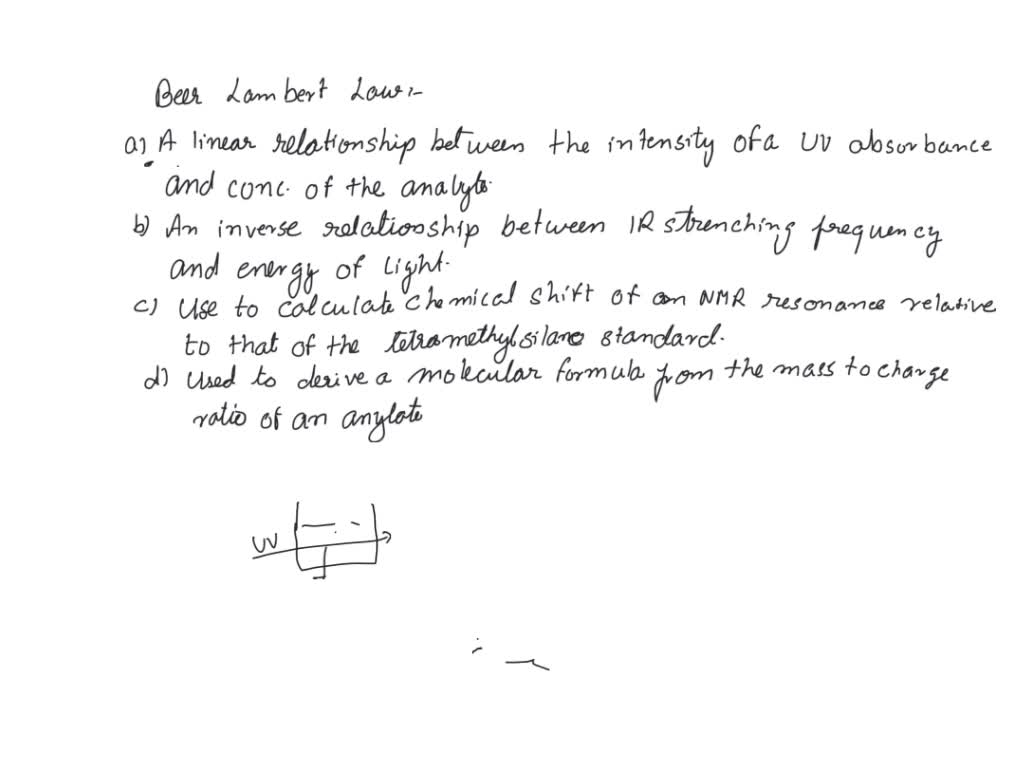 Beer Lambert Law :-
a) A linear relationship between the intensity of a UV absorbance
and conc. of the analyte.
b) An inverse relatiosship between IR strenching frequency
and energy of light.
c) Use to calculate chemical shift of an NMR resonance relative
to that of the tetramethylsilane standard.
d) Used to derive a molecular formula from the mass to charge
ratio of an anylate
UV